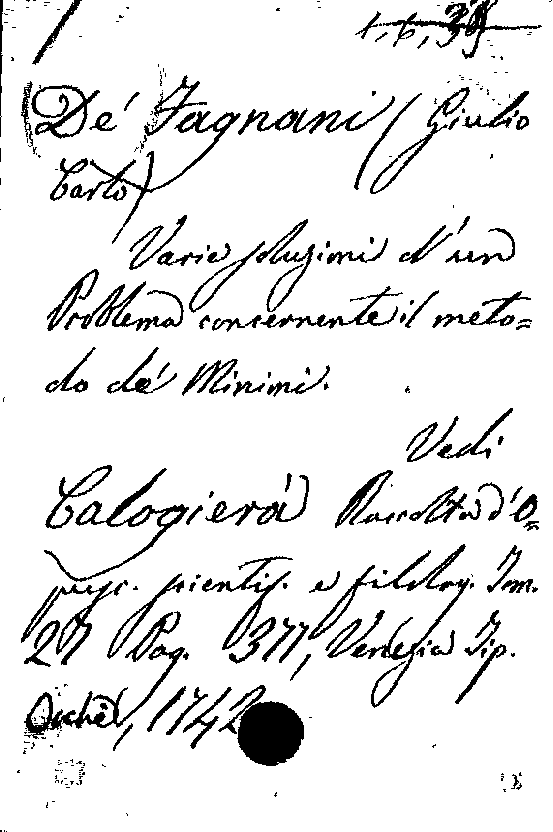 (De' Fagnani (Giulio
Carlo)
Varie soluzioni d'un
Problema concernente il meto=
do de' Minimi.
Vedi
Calogierà Raccolta d'O=
pusc. scientif. e filolog. Tom.
27 Pag. 377, Venezia Tip.
Occhi, 1742